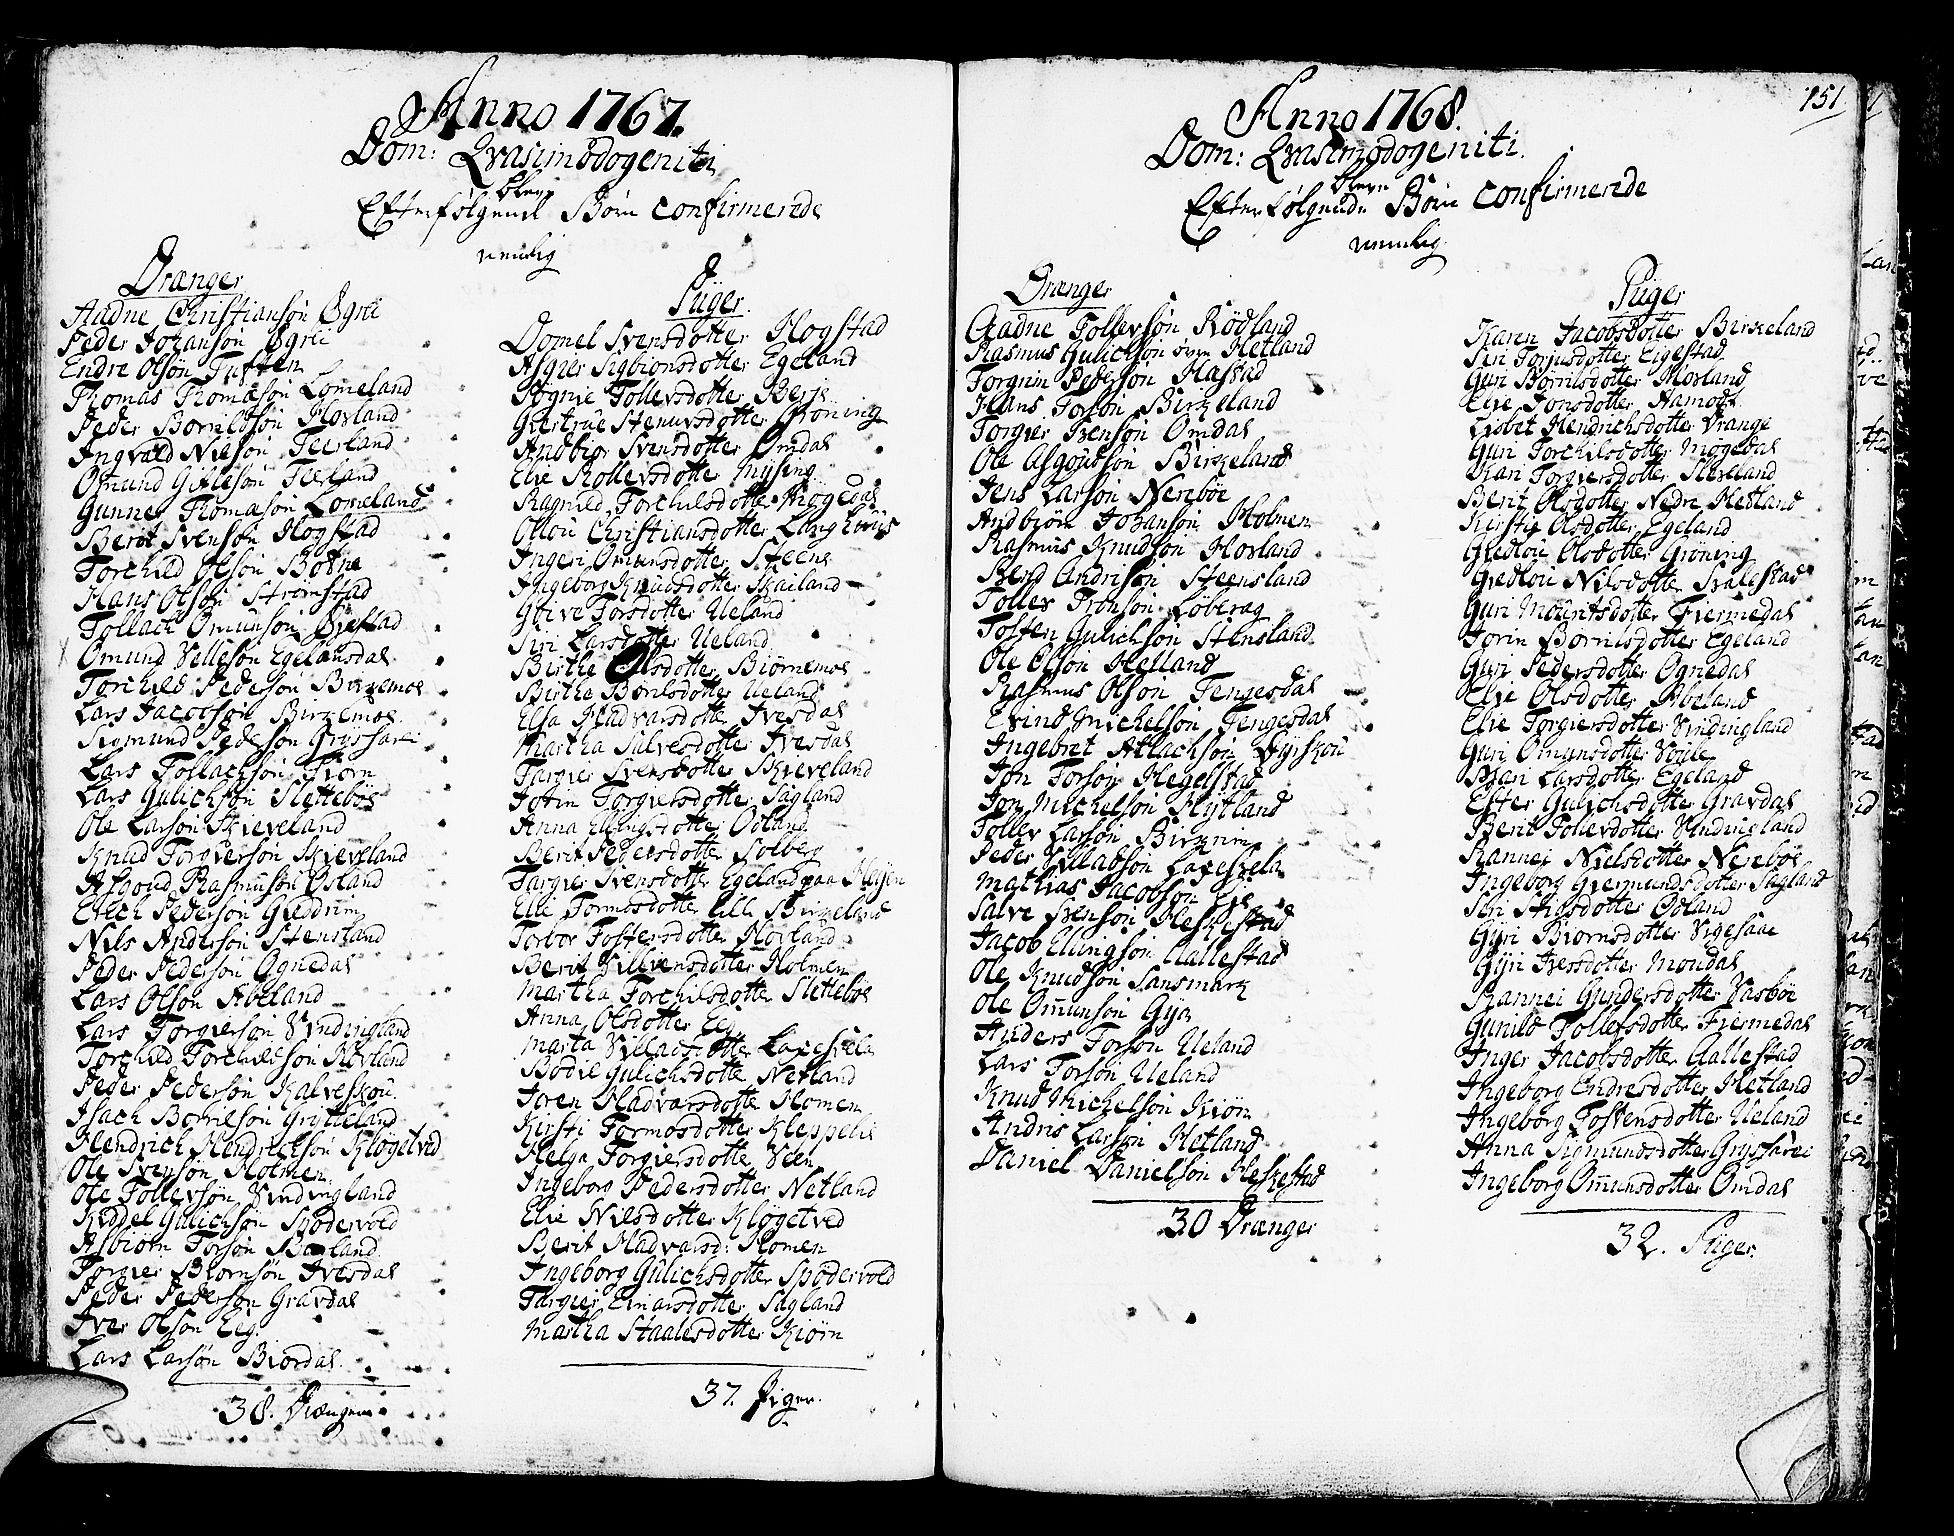 Anno 1767.
Dom: Qvasimodogeniti
blev
Efterfølgende Børn confirmerede
nemlig
Drænger
Aadne Christiansøn Øgrei
Peder Johansøn Øgrei
Endre Olsøn Tuften
Thomas Thomæsøn Lomeland
Peder Bornildsøn Hovland
Ingvald Nielsøn Teerland
Osmund Gitlesøn Teeland
Gunner Thomæsøn Lomeland
Berot Svensøn Hogstad
Torchild Olsøn Botne
Hans Olsøn Stromstad
Tollach Omunsøn Øvestad
Omund Vellesøn Egelansdal
Torchild Pedersøn Birkemoe
Lars Jacobsøn Birkemoe
Sigmund Pedersøn Gryssarei
Lars Tollachsøn Tiorn
Lars Gulichsøn Slettebøe
Ole Larsøn Skieveland
Knud Torgiersøn Skieveland
Asgoud Rasmusøn Osland
Erich Pedersøn Gieddrim
Nils Andersøn Stensland
Peder Pedersøn Ognedal
Lars Olsøn Abeland
Lars Torgiersøn Vindingland
Torchild Torchildsøn Hovland
Peder Pedersøn Kalveskou
Isach Bornilsøn Grytteland
Hendrich Hendrichsøn Kløgetved
Ole Svensøn Holmen
Ole Tollevsøn Vindingland
Kiddel Gulichsøn Spodervold
Asbiørn Torsøn Bieland
Torgier Biornsøn Ivesdal
Peder Pedersøn Gravdal
Iver Olsøn Eeg.
Lars Larsøn Biordal
38. Drænger
Piiger.
Domel Svensdotter Hogstad
Asgier Sigbionsdotter Egeland
Søgnie Tollevsdotter Berse
Giertrue Stenuvsdotter Groning
Andbiør Svensdotter Omdal
Elie Rollevsdotter Mysing
Ragnild Torchilsdotter Mogedal
Ollou Christiansdotter Langhuus
Ingeri Omunsdotter Steene
Ingeborg Knudsdotter Skailand
Gitive Torsdotter Ueland
Siri Larsdotter Ueland
Birthe Olsdotter Biørnemoe
Birthe Bornilsdotter Ueland
Elsa Hadvarsdotter Ivesdal
Martha Salvesdotter Ivesdal
Targier Svensdotter Skieveland
Jorin Torgiersdotter Sagland
Anna Ellingsdotter Odland
Berit Pedersdotter Solberg
Targier Svensdotter Egeland paa Heien
Elli Tormosdotter lille Birkeland
Torbor Tostensdotter Hovland
Berit Villumsdotter Holmen
Martha Torchilsdotter Slettebøe
Anna Olsdotter Eeg
Marta Villadsdotter Laxesvela
Bodil Gulichsdotter Netland
Joren Hadvarsdotter Homen
Kirsti Tormosdotter Kleppelie
Helga Torgiersdotter Veen
Ingeborg Pedersdotter Netland
Elie Nilsdotter Kløgetved
Berit Hadvarsd: Homen
Ingeborg Gulichsdotter Spodervold
Targier Einarsdotter Sagland
Martha Staalesdotter Kiørn
37. Piger.
151
Anno 1768.
Dom: Qvasimodogeniti.
bleve
Efterfølgende Børn confirmerede
nemlig
Drænger
Aadne Tollevsøn Rødland
Rasmus Gulichsøn øvre Hetland
Torgrim Pedersøn Hastad
Hans Torsøn Birkeland
Torgier Svensøn Omdal
Ole Asgoutsøn Birkeland
Jens Larsøn Nesebøe
Andbiørn Johansøn Holmen
Rasmus Knudsøn Hovland
Bend Andrisøn Steensland
Tollev Tronsøn Løberag
Tosten Gulichsøn Stensland
Ole Olsøn Helland
Rasmus Olsøn Tengesdal
Evind Michelsøn Tengesdal
Ingebret Atlachsøn Dyrskou
Jon Torsøn Hegelstad
Jon Michelsøn Hytland
Tollev Larsøn Birkrim
Peder Villadsøn Laxesvela
Mathias Jacobsøn Eie
Salve Svensøn Heskestad
Jacob Ellingsøn Aallestad
Ole Knudsøn Sansmark
Ole Omunsøn Gya
Anders Torsøn Ueland
Lars Torsøn Ueland
Knud Michelsøn Kiørn
Andris Larsøn Hetland
Daniel Danielsøn Heskestad
30 Drænger
Piiger
Karen Jacobsdotter Birkeland
Siri Torjusdotter Eigestad
Guri Bornilsdotter Hovland
Elie Jonsdotter Aamodt
Lisbet Hendrichsdotter Vrange
Guri Torchilsdotter Mogedal
Kari Torgiersdotter Steveland
Berit Olsdotter Nedre Hetland
Kirstie Olsdotter Egeland
Giedlou Olsdotter Grøning
Giedlou Nilsdotter Svalestad
Guri Mouritsdotter Fiermedal
Jorin Bornilsdotter Egeland
Guri Pedersdotter Ognedal
Elie Olsdotter Abeland
Elie Torgiersdotter Vindingland
Guri Omunsdotter
Mari Larsdotter Egeland
Ester Gulichsdotter Gravdal
Berit Tollevdotter Vindingland
Rannei Nielsdotter Nesebøe
Ingeborg Giermundsdotter Sagland
Siri Stigsdotter Ødland
Gyri Biornsdotter Vigesaae
Gyri Iversdotter Moudal
Rannei Gundersdotter Vasbøe
Gunild Tollefsdotter Fiermedal
Inger Jacobsdotter Aallestad
Ingeborg Endresdotter Hetland
Ingeborg Tostensdotter Ueland
Anna Sigmundsdotter Gryssarei
Ingeborg Omunsdotter Omdal
32. Piiger.